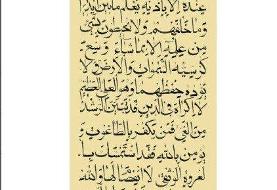 عنده الا باذنه يعلم ما بين ايديهم
وما خلفهم ولا يحيطون بشئ
من علمه الا بما شاء وسع
كرسيه السموات والارض ولا
يوده حفظهما وهو العلي العظيم
لا اكراه في الدين قد تبين الرشد
من الغي فمن يكفر بالطاغوت و
يومن بالله فقد استمسك با
لعروة الوثقى لا انفصام لها والله